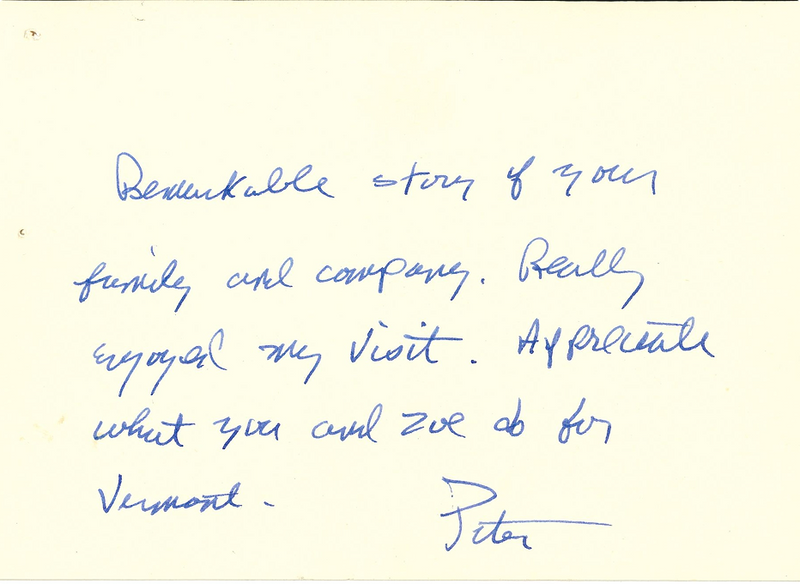 Remarkable story of your
family and company. Really
enjoyed my visit. Appreciate
what you and Zoe do for
Vermont.
Peter